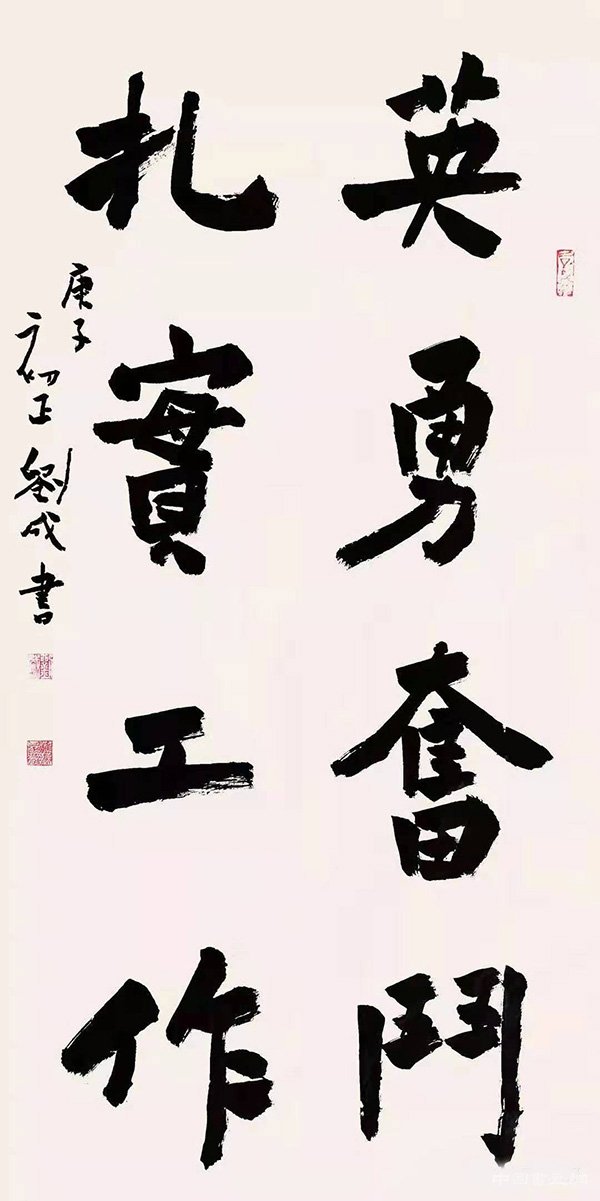 英勇奮鬥
扎實工作
庚子
初正劉成書